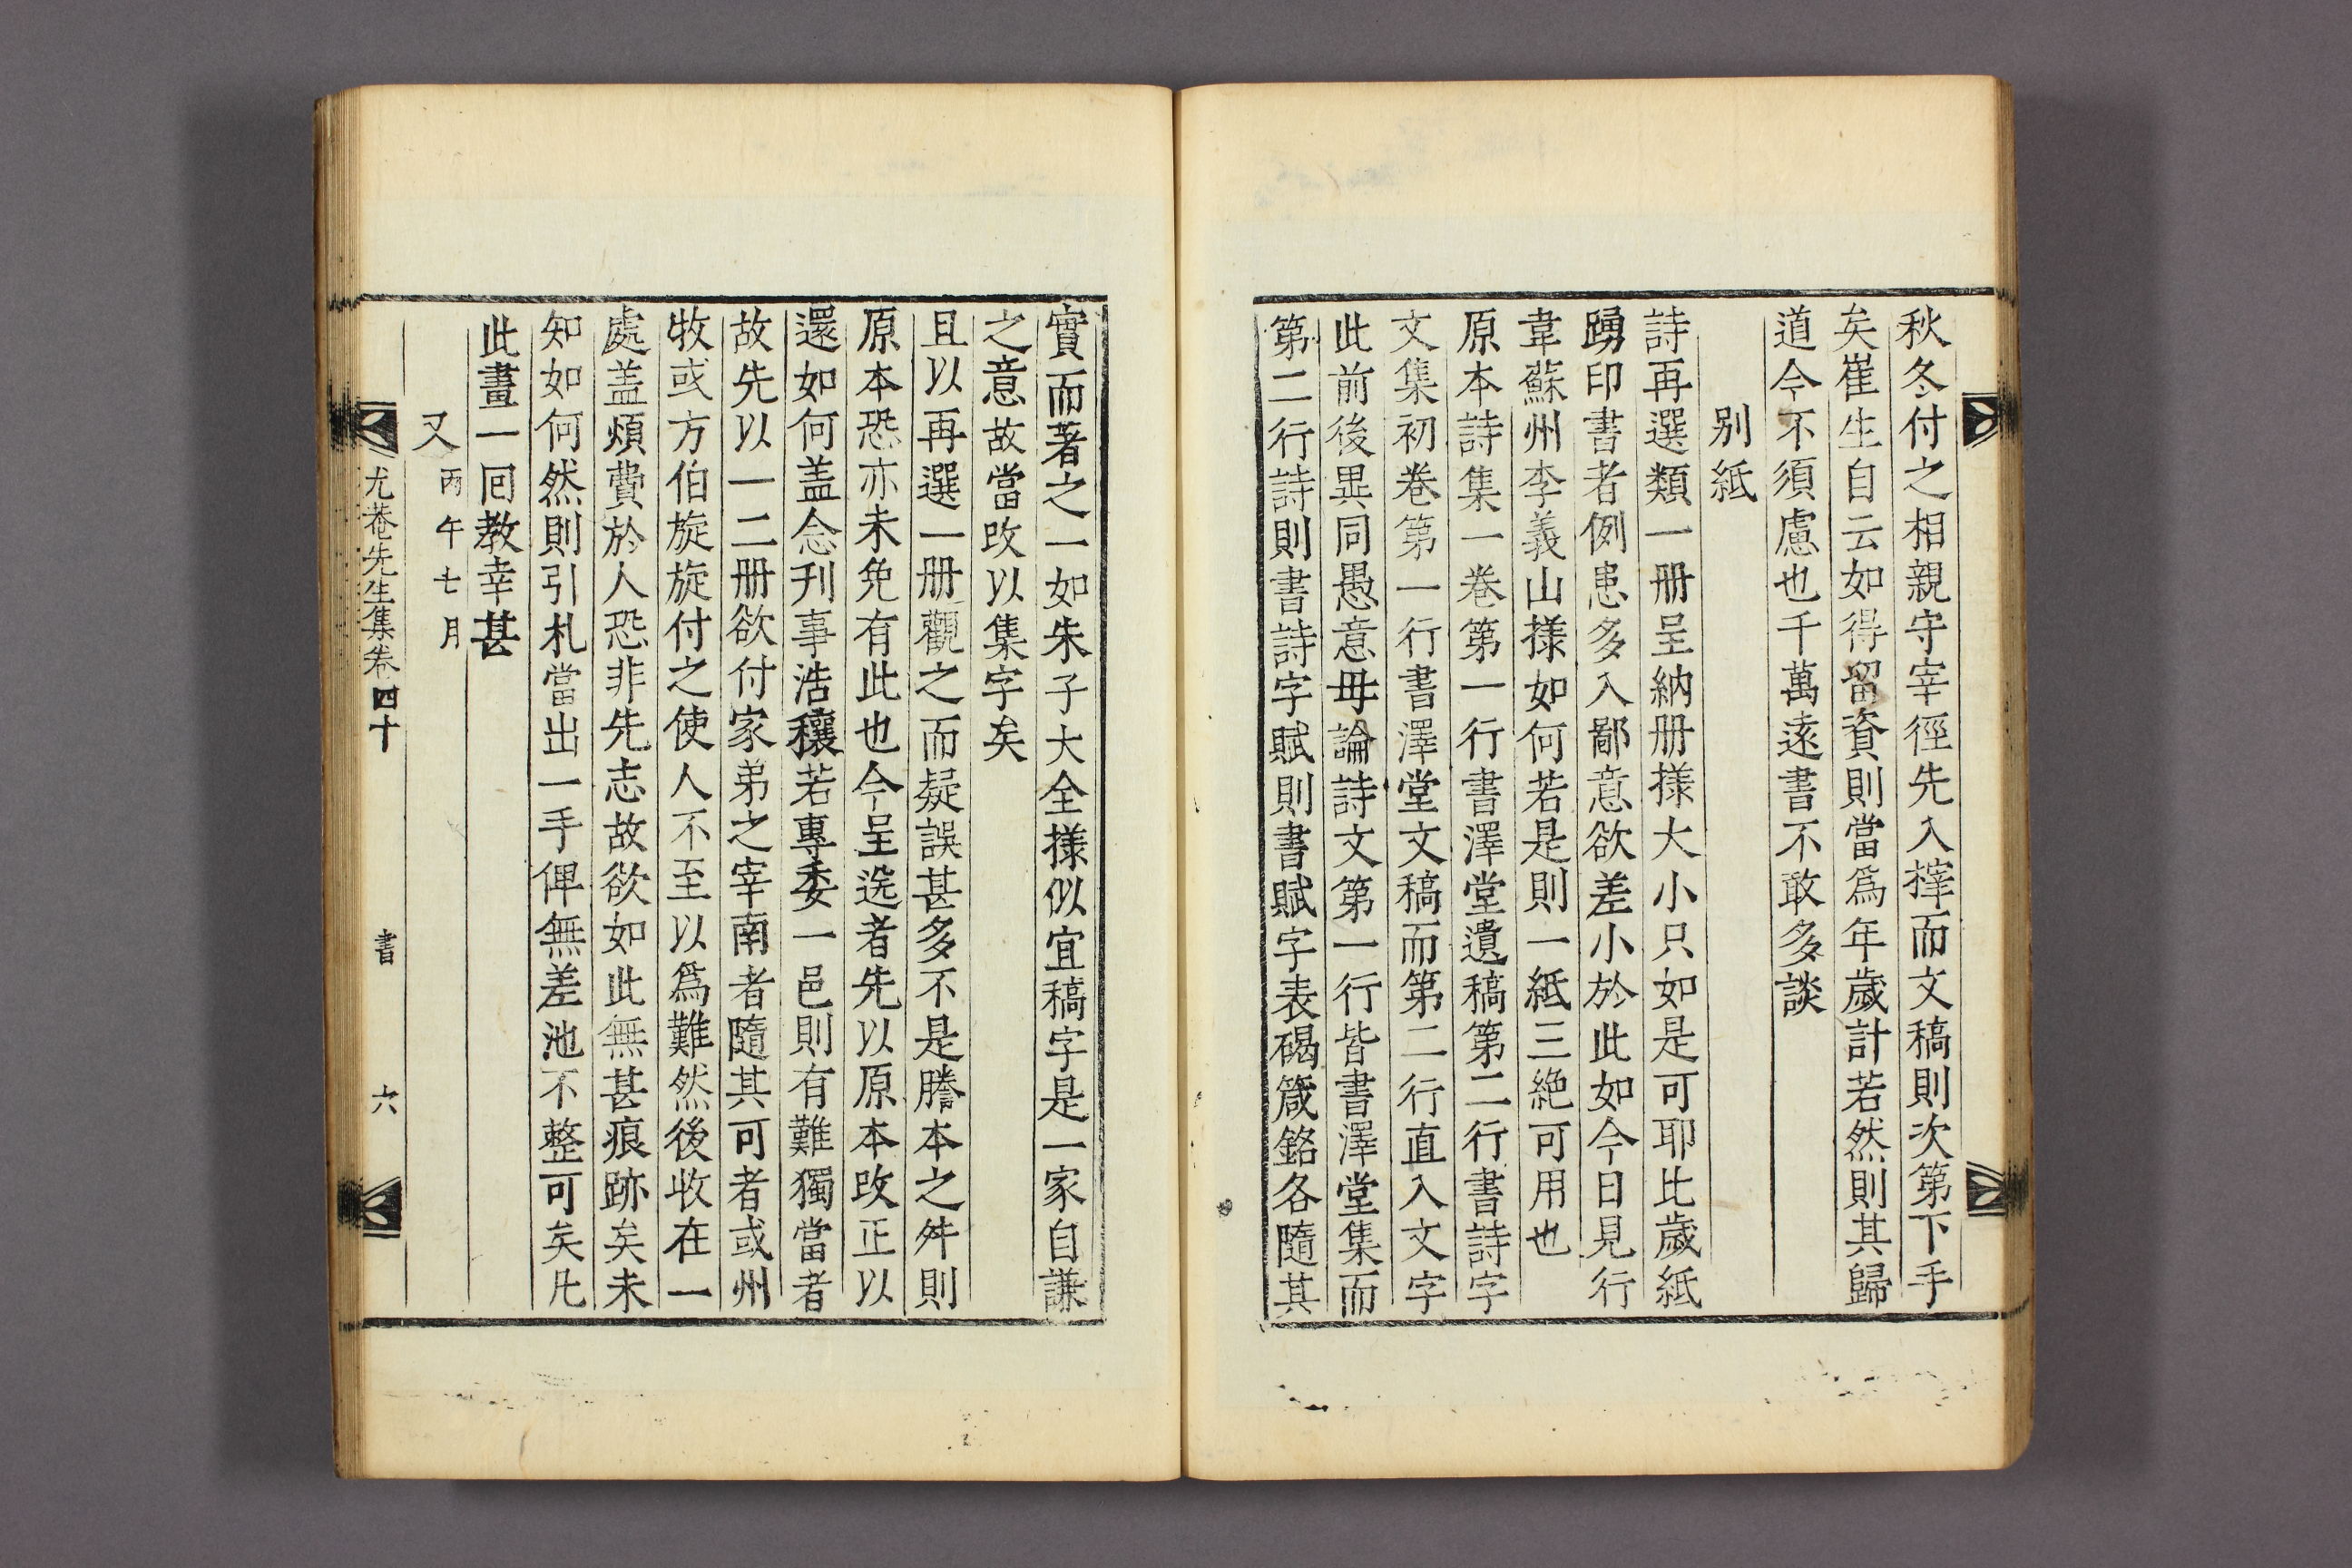 秋冬付之相親守宰徑先入擇而文稿則次第下手
矣崔生自云如得留資則當爲年歲計若然則其歸
道今不須慮也千萬遠書不敢多談
别紙
詩再選類一冊呈納冊樣大小只如是可耶比歲紙
踴印書者例患多入鄙意欲差小於此如今日見行
韋蘇州李義山樣如何若是則一紙三絶可用也
原本詩集一卷第一行書澤堂遺稿第二行書詩字
文集初卷第一行書澤堂文稿而第二行直入文字
此前後異同愚意毋論詩文第一行皆書澤堂集而
第二行詩則書詩字賦則書賦字表碣箴銘各隨其
實而著之一如朱子大全樣似宜稿字是一家自謙
之意故當改以集字矣
且以再選一冊觀之而疑誤甚多不是謄本之舛則
原本恐亦未免有此也今呈选者先以原本改正以
還如何盖念刋事浩穰若專委一邑則有難獨當者
故先以一二冊欲付家弟之宰南者隨其可者或州
牧或方伯旋旋付之使人不至以爲難然後收在一
處盖煩費於人恐非先志故欲如此無甚痕跡矣未
知如何然則引札當出一手俾無差池不整可矣凡
此畫一回教幸甚
又 丙午七月
尤菴先生集卷四十 書 六